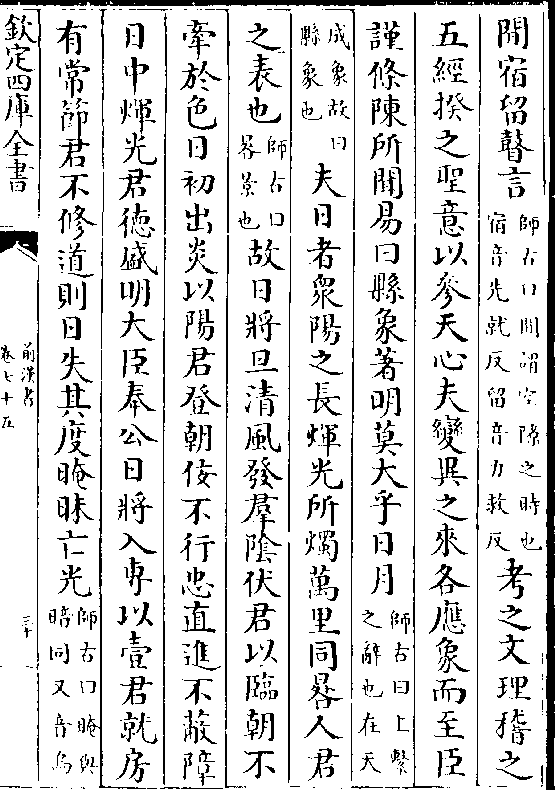 閒宿留瞽言師古曰閒謂空隙之時也宿音先就反留音力救反考之文理稽之
五經揆之聖意以參天心夫變異之來各應象而至臣
謹條陳所聞易曰縣象著明莫大乎日月師古曰上繫之辭也在天
成象故曰縣象也夫日者衆陽之長煇光所燭萬里同晷人君
之表也師古曰晷景也故日將旦清風發羣陰伏君以臨朝不
牽於色日初出炎以陽君登朝佞不行忠直進不蔽障
日中煇光君德盛明大臣奉公日將入專以壹君就房
有常節君不修道則日失其度晻昧亡光師古曰晻與暗同又音烏
欽定四庫全書
前漢書
卷七十五
三十